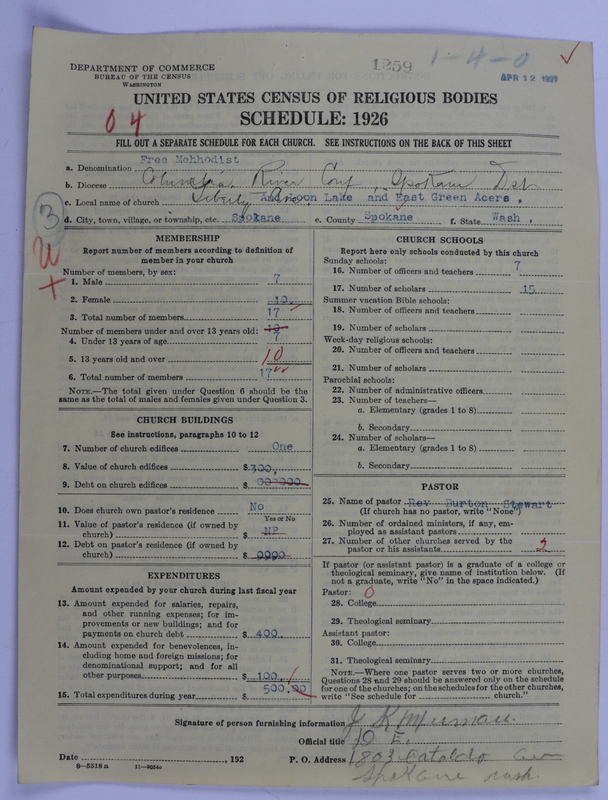 1259
1-4-0
DEPARTMENT OF COMMERCE
BUREAU OF THE CENSUS
WASHINGTON
APR 12 1927
UNITED STATES CENSUS OF RELIGIOUS BODIES
04
SCHEDULE: 1926
FILL OUT A SEPARATE SCHEDULE FOR EACH CHURCH. SEE INSTRUCTIONS ON THE BACK OF THIS SHEET
a. Denomination Free Mehhodist
b. Diocese Columbia River Conf, Spokane Dst
c. Local name of church Liberty Lake and East Green Acers,
d. City, town, village, or township, etc. Spokane e. County Spokane f. State Wash,
3
MEMBERSHIP
Report number of members according to definition of
member in your church
Number of members, by sex:
1. Male 7
2. Female 10.
3. Total number of members 17
Number of members under and over 13 years old:
4. Under 13 years of age 7
5. 13 years old and over 10
6. Total number of members 17
NOTE.—The total given under Question 6 should be the
same as the total of males and females given under Question 3.
CHURCH BUILDINGS
See instructions, paragraphs 10 to 12
7. Number of church edifices One
8. Value of church edifices $300,
9. Debt on church edifices $
10. Does church own pastor's residence? No
Yes or No
11. Value of pastor's residence (if owned by
church) $
12. Debt on pastor's residence (if owned by
church) $
EXPENDITURES
Amount expended by your church during last fiscal year
13. Amount expended for salaries, repairs,
and other running expenses; for im-
provements or new buildings; and for
payments on church debt $400.
14. Amount expended for benevolences, in-
cluding home and foreign missions; for
denominational support; and for all
other purposes $100.
15. Total expenditures during year $500.00
CHURCH SCHOOLS
Report here only schools conducted by this church
Sunday schools:
16. Number of officers and teachers 7
17. Number of scholars 15
Summer vacation Bible schools:
18. Number of officers and teachers
19. Number of scholars
Week-day religious schools:
20. Number of officers and teachers
21. Number of scholars
Parochial schools:
22. Number of administrative officers
23. Number of teachers—
a. Elementary (grades 1 to 8)
b. Secondary
24. Number of scholars—
a. Elementary (grades 1 to 8)
b. Secondary
PASTOR
25. Name of pastor Rev Burton Stewart
(If church has no pastor, write "None")
26. Number of ordained ministers, if any, em-
ployed as assistant pastors
27. Number of other churches served by the
pastor or his assistants 2
If pastor (or assistant pastor) is a graduate of a college or
theological seminary, give name of institution below. (If
not a graduate, write "No" in the space indicated.)
Pastor: 0
28. College
29. Theological seminary
Assistant pastor:
30. College
31. Theological seminary
NOTE.—Where one pastor serves two or more churches,
Questions 28 and 29 should be answered only on the schedule
for one of the churches; on the schedules for the other churches,
write "See schedule for church."
Signature of person furnishing information J K
Official title D E.
Date , 192 P. O. Address 1803 Cataldo Ave
8—5518a 11—9054c Spokane Wash.